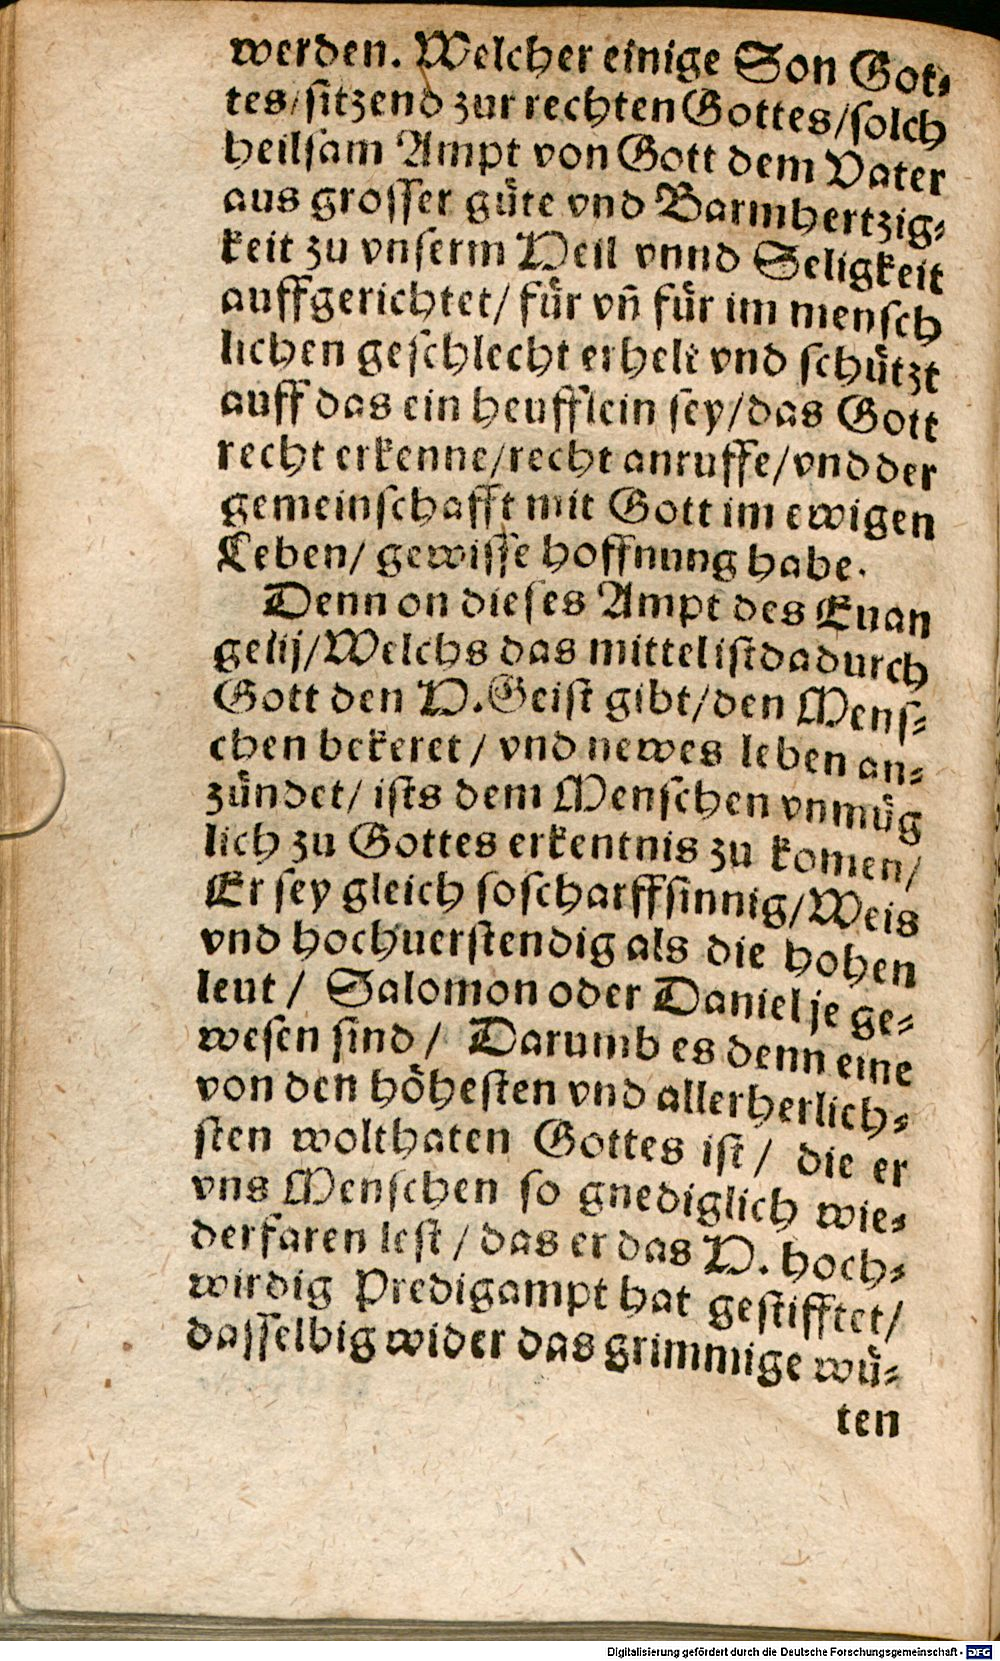 werden. Welcher einige Son Got⸗
tes/sitzend zur rechten Gottes/solch
heilsam Ampt von Gott dem Vater
aus grosser güte vnd Barmhertzig⸗
keit zu vnserm Heil vnnd Seligkeit
auffgerichtet/ für vñ für im mensch
lichen geschlecht erhelt vnd schützt
auff das ein heufflein sey/das Gott
recht erkenne/recht anruffe/vnd der
gemeinschafft mit Gott im ewigen
Leben/ gewisse hoffnung habe.
Denn on dieses Ampt des Euan
gelij/Welchs das mittel ist dadurch
Gott den H. Geist gibt/den Mens⸗
chen bekeret / vnd newes leben an⸗
zündet/ ists dem Menschen vnmüg
lich zu Gottes erkentnis zu komen/
Er sey gleich so scharffsinnig/Weis
vnd hochuerstendig als die hohen
leut / Salomon oder Daniel je ge⸗
wesen sind / Darumb es denn eine
von den höhesten vnd allerherlich⸗
sten wolthaten Gottes ist / die er
vns Menschen so gnediglich wie⸗
derfaren lest / das er das H. hoch⸗
wirdig Predigampt hat gestifftet/
dasselbig wider das grimmige wü⸗
ten
Digitalisierung gefördert durch die Deutsche Forschungsgemeinschaft - DFG